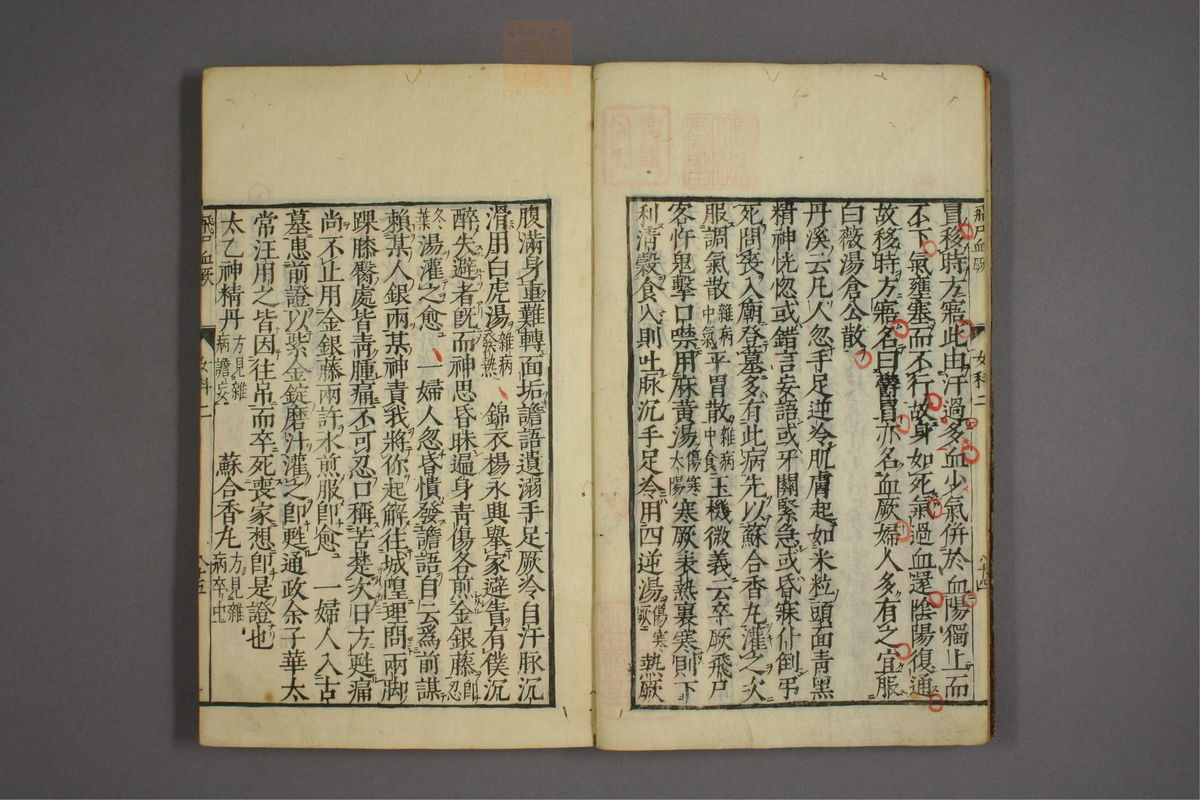 冒移時方寤此由汗過多血少氣併於血陽獨上而
不下氣壅塞而不行故身如死氣過血還陰陽復通
故移時方寤名曰鬱冒亦名血厥婦人多有之宜服
白薇湯倉公散
丹溪云凡人忽手足逆冷肌膚起如米粒頭面青黑
精神恍惚或錯言妄語或牙關緊急或昏寐仆倒弔
死問喪入廟登墓多有此病先以蘇合香丸灌之次
服調氣散雜病中氣平胃散雜病中食玉機微義云卒厥飛尸
客忤鬼擊口噤用麻黃湯傷寒太陽寒厥表熱裏寒則下
利清穀食入則吐脉沉手足冷用四逆湯傷寒厥熱厥
飛尸血厥 女科二 八十四
腹滿身重難轉面垢譫語遺溺手足厥冷自汗脉沉
滑用白虎湯雜病發熱 錦衣楊永興舉家避青有僕沉
醉失避者既而神思昏昧遍身青傷各煎金銀藤即忍
冬葉湯灌之愈 一婦人忽昏憒發譫語自云為前謀
賴某人銀兩某神責我將你起解往城隍理問兩脚
踝膝臀處皆青腫痛不可忍口稱苦楚次日方甦痛
尚不止用金銀藤兩許水煎服即愈 一婦人入古
墓患前證以紫金錠磨汁灌之即甦通政余子華太
常汪用之皆因往弔而卒死喪家想即是證也
太乙神精丹方見雜病譫妄 蘇合香丸方見雜病卒中
飛尸血厥 女科二 八十五